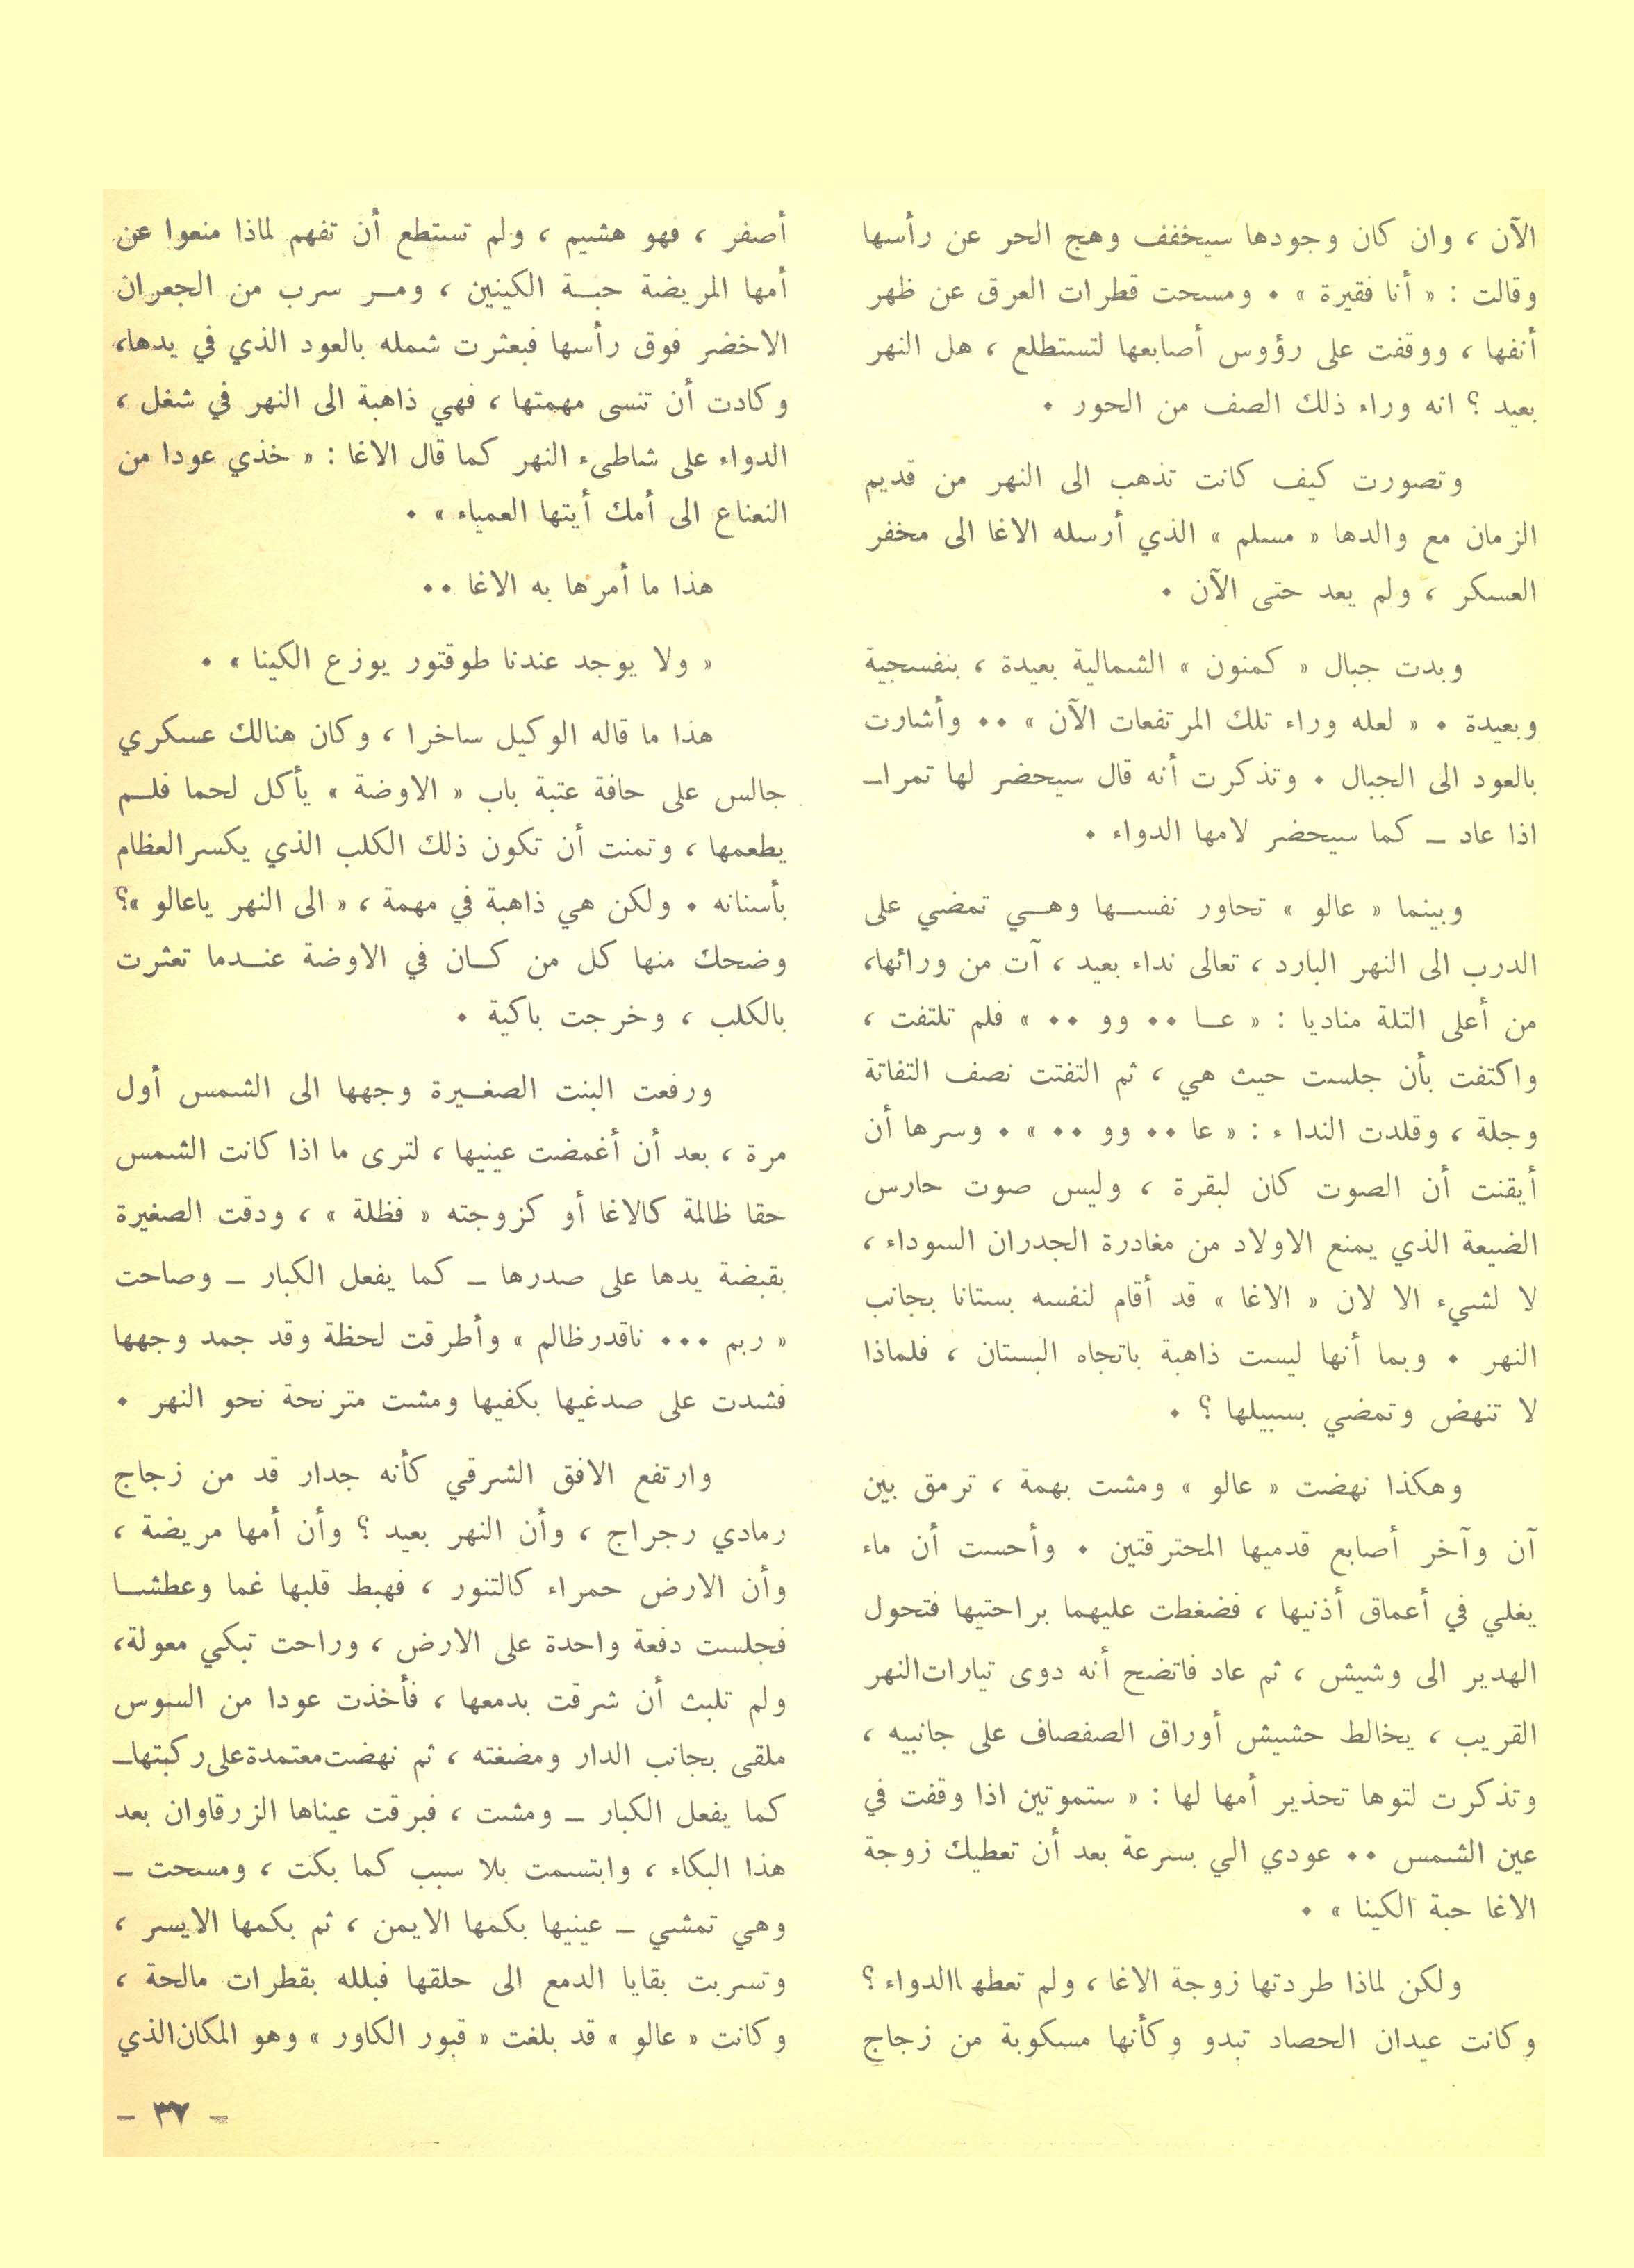 الآن ، وان كان وجودها سيخفف وهج الحر عن رأسها
وقالت : « أنا فقيرة » ٠ ومسحت قطرات العرق عن ظهر
أنفها ، ووقفت على رؤوس أصابعها لتستطلع ، هل النهر
بعيد ؟ انه وراء ذلك الصف من الحور ٠
وتصورت كيف كانت تذهب الى النهر من قديم
الزمان مع والدها « مسلم » الذي أرسله الاغا الى مخفر
العسكر ، ولم يعد حتى الآن ٠
وبدت جبال « كمنون » الشمالية بعيدة ، بنفسجية
وبعيدة ٠ « لعله وراء تلك المرتفعات الآن » ٠٠ وأشارت
بالعود الى الجبال ٠ وتذكرت أنه قال سيحضر لها تمرا ـ
اذا عاد ـ كما سيحضر لامها الدواء ٠
وبينما « عالو » تحاور نفســها وهــي تمضي على
الدرب الى النهر البارد ، تعالى نداء بعيد ، آت من ورائها،
من أعلى التلة مناديا : « عــا ٠٠ وو ٠٠ » فلم تلتفت ،
واكتفت بأن جلست حيث هي ، ثم التفتت نصف التفاتة
وجلة ، وقلدت النداء : « عا ٠٠ وو ٠٠ » ٠ وسرها أن
أيقنت أن الصوت كان لبقرة ، وليس صوت حارس
الضيعة الذي يمنع الاولاد من مغادرة الجدران السوداء ،
لا لشيء الا لان « الاغا » قد أقام لنفسه بستانا بجانب
النهر ٠ وبما أنها ليست ذاهبة باتجاه البستان ، فلماذا
لا تنهض وتمضي بسبيلها ؟ ٠
وهكذا نهضت « عالو » ومشت بهمة ، ترمق بين
آن وآخر أصابع قدميها المحترقتين ٠ وأحست أن ماء
يغلي في أعماق أذنيها ، فضغطت عليهما براحتيها فتحول
الهدير الى وشيش ، ثم عاد فاتضح أنه دوى تيارات النهر
القريب ، يخالط حشيش أوراق الصفصاف على جانبيه ،
وتذكرت لتوها تحذير أمها لها : « ستموتين اذا وقفت في
عين الشمس ٠٠ عودي الي بسرعة بعد أن تعطيك زوجة
الاغا حبة الكينا » ٠
ولكن لماذا طردتها زوجة الاغا ، ولم تعطها الدواء ؟
وكانت عيدان الحصاد تبدو وكأنها مسكوبة من زجاج
أصفر ، فهو هشيم ، ولم تستطع أن تفهم لماذا منعوا عن
أمها المريضة حبــة الكينين ، ومــر سرب من الجعران
الاخضر فوق رأسها فبعثرت شمله بالعود الذي في يدها،
وكادت أن تنسى مهمتها ، فهي ذاهبة الى النهر في شغل ،
الدواء على شاطىء النهر كما قال الاغا : « خذي عودا من
النعناع الى أمك أيتها العمياء » ٠
هذا ما أمرها به الاغا ٠٠
« ولا يوجد عندنا طوقتور يوزع الكينا » ٠
هذا ما قاله الوكيل ساخرا ، وكان هنالك عسكري
جالس على حافة عتبة باب « الاوضة » يأكل لحما فلــم
يطعمها ، وتمنت أن تكون ذلك الكلب الذي يكسر العظام
بأسنانه ٠ ولكن هي ذاهبة في مهمة ، « الى النهر ياعالو »؟
وضحك منها كل من كــان في الاوضة عنــدما تعثرت
بالكلب ، وخرجت باكية ٠
ورفعت البنت الصغــيرة وجهها الى الشمس أول
مرة ، بعد أن أغمضت عينيها ، لترى ما اذا كانت الشمس
حقا ظالمة كالاغا أو كزوجته « فظلة » ، ودقت الصغيرة
بقبضة يدها على صدرها ـ كما يفعل الكبار ـ وصاحت
« ربم ٠٠٠ ناقدر ظالم » وأطرقت لحظة وقد جمد وجهها
فشدت على صدغيها بكفيها ومشت مترنحة نحو النهر ٠
وارتفع الافق الشرقي كأنه جدار قد من زجاج
رمادي رجراج ، وأن النهر بعيد ؟ وأن أمها مريضة ،
وأن الارض حمراء كالتنور ، فهبط قلبها غما وعطشــا
فجلست دفعة واحدة على الارض ، وراحت تبكي معولة،
ولم تلبث أن شرقت بدمعها ، فأخذت عودا من السوس
ملقى بجانب الدار ومضغته ، ثم نهضت معتمدة على ركبتها ـ
كما يفعل الكبار ـ ومشت ، فبرقت عيناها الزرقاوان بعد
هذا البكاء ، وابتسمت بلا سبب كما بكت ، ومسحت ـ
وهي تمشي ـ عينيها بكمها الايمن ، ثم بكمها الايسر ،
وتسربت بقايا الدمع الى حلقها فبلله بقطرات مالحة ،
وكانت « عالو » قد بلغت « قبور الكاور » وهو المكان الذي
- ٣٧ -